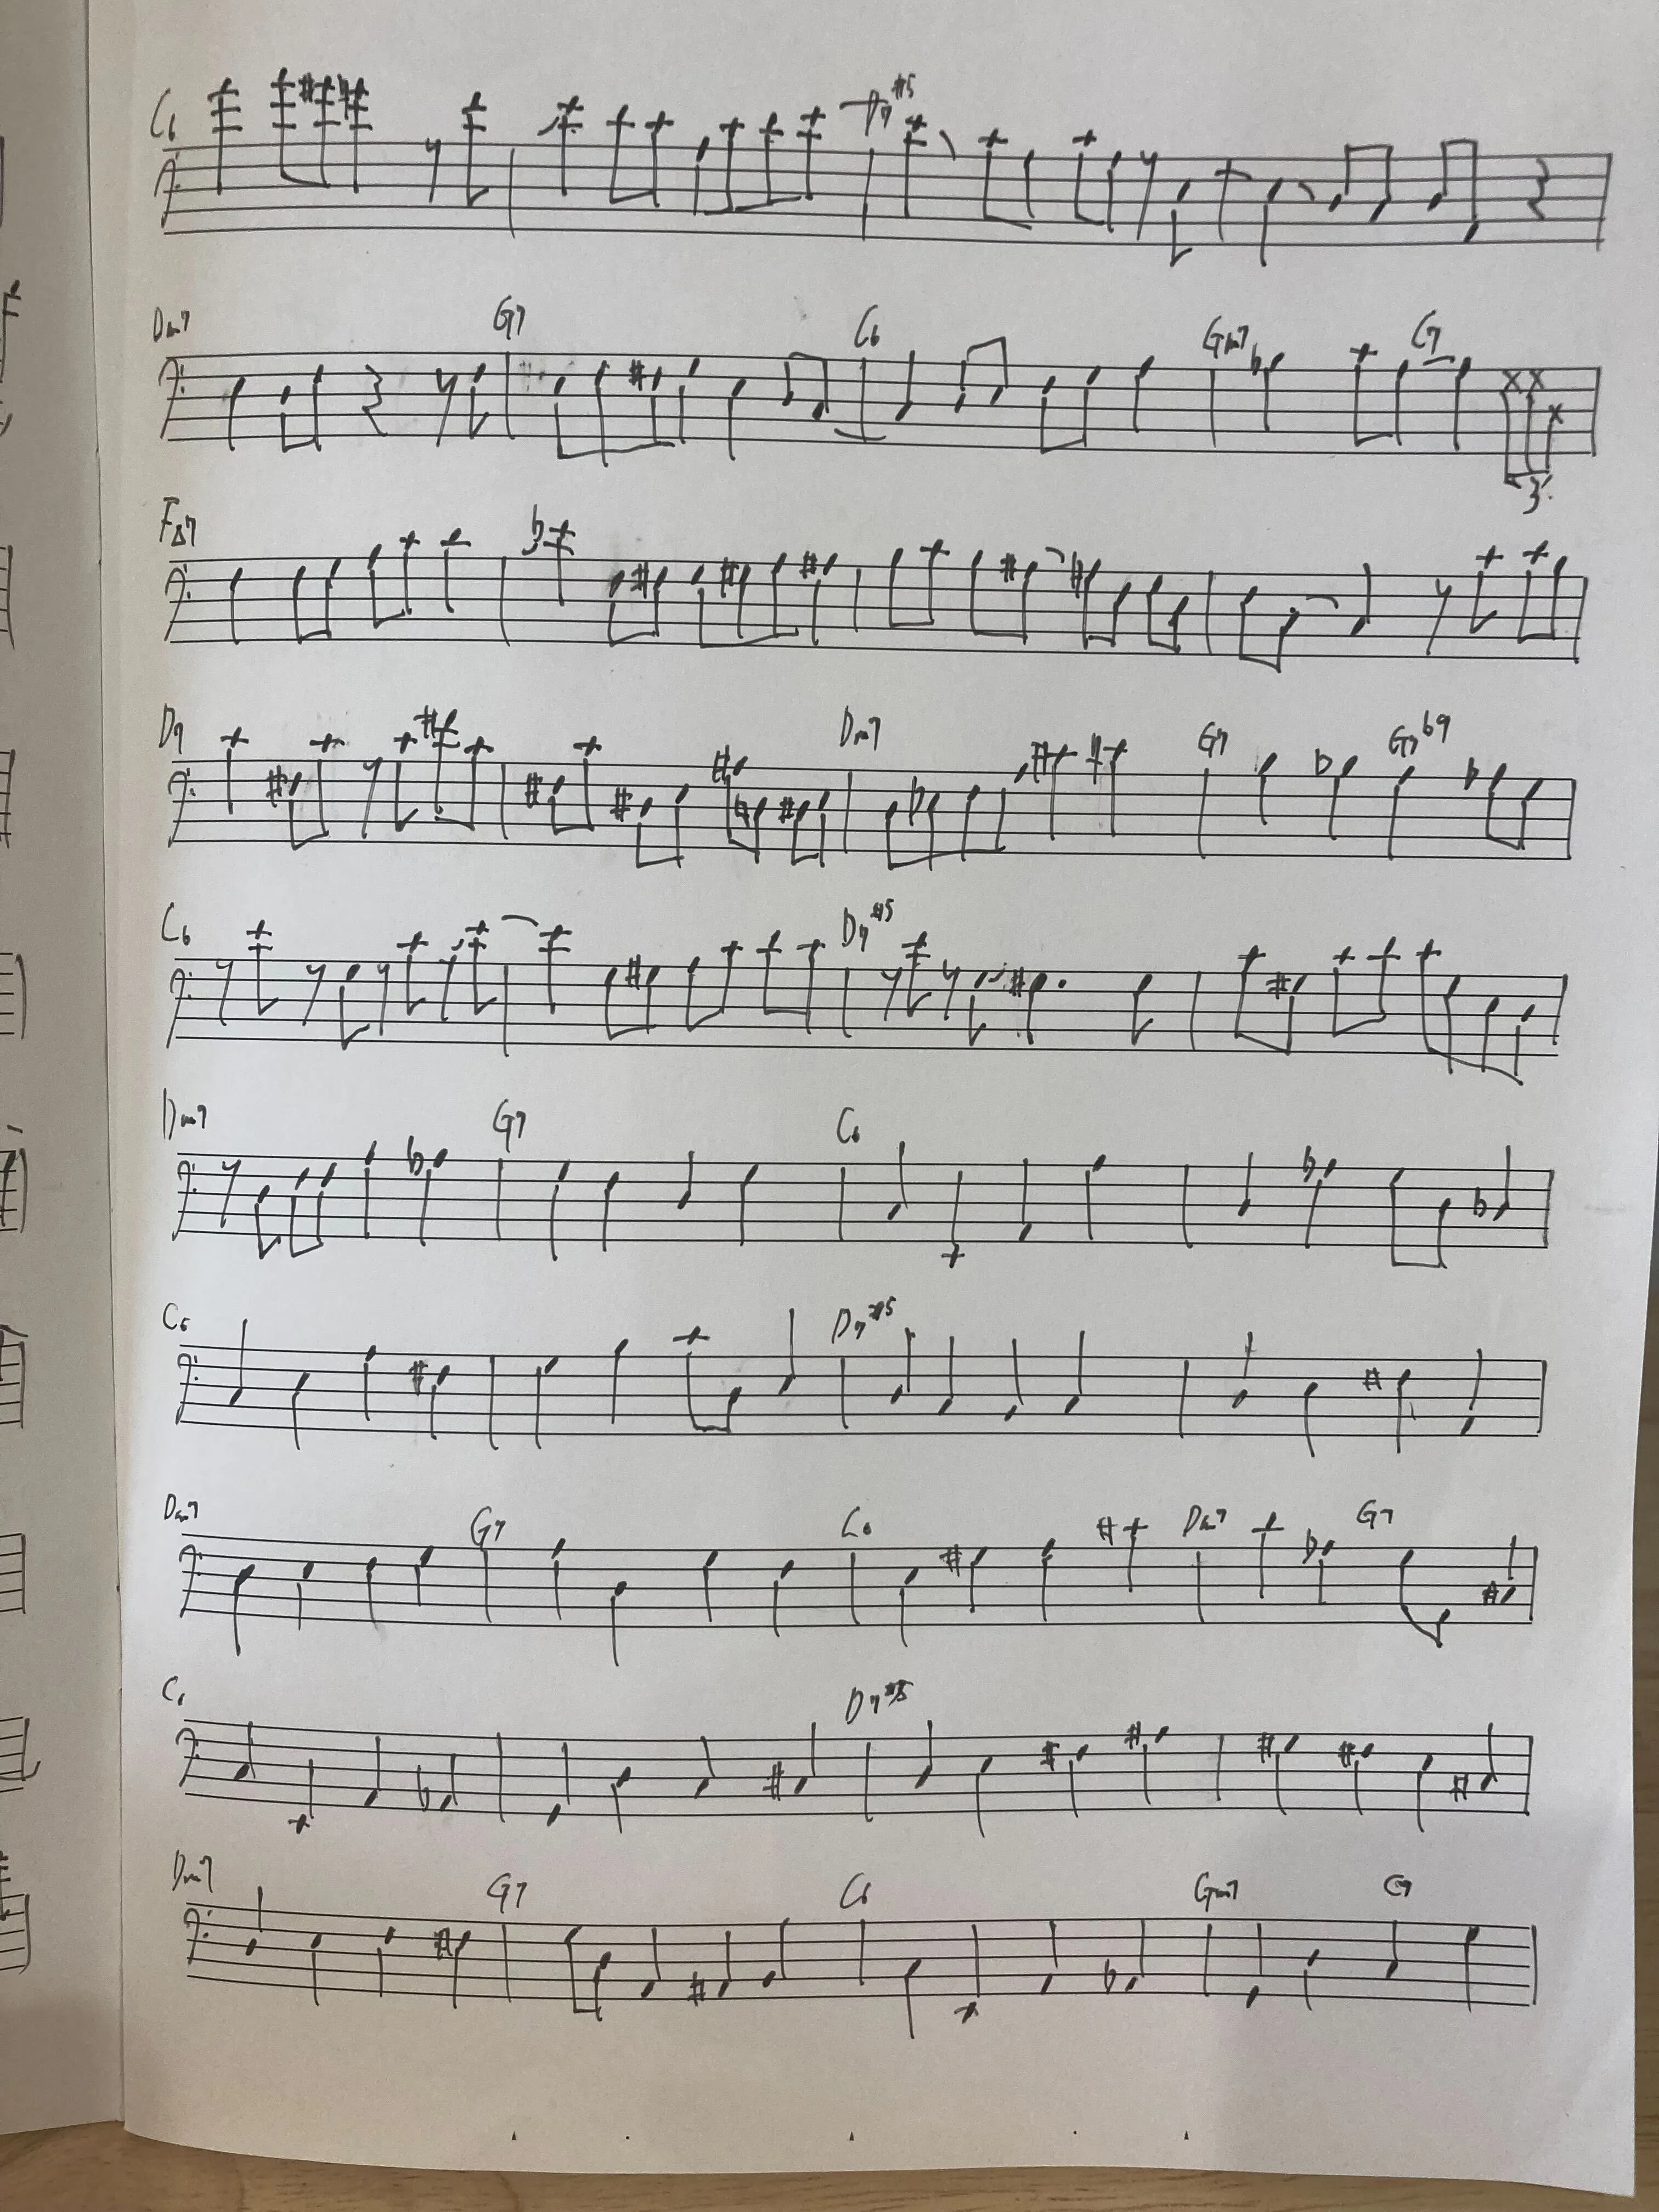 C6 D7#5
Dm7 G7 C6 Gm7 C7
3
FΔ7
D7 Dm7 G7 G7b9
C6 D7#5
Dm7 G7 C6
C6 D7#5
Dm7 G7 C6 Dm7 G7
C6 D7#5
Dm7 G7 C6 Gm7 C7